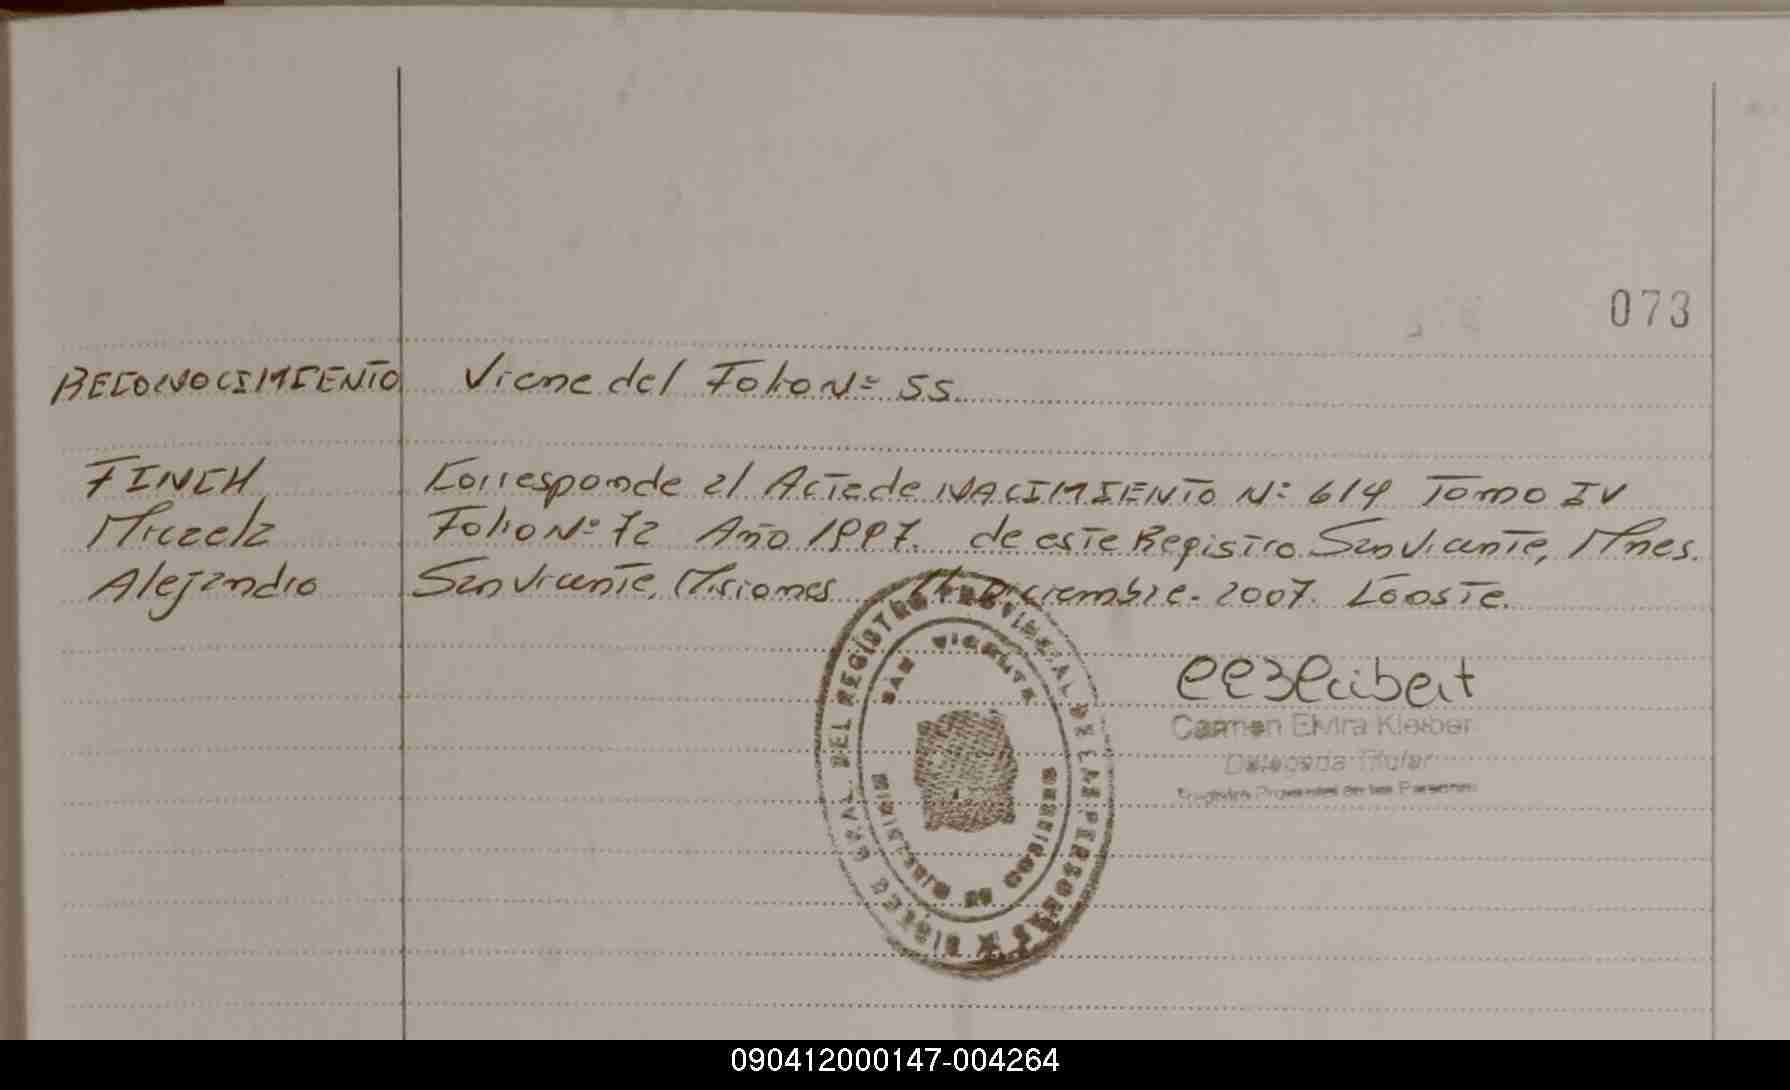 073
RECONOCIMIENTO Viene del Folio Nº 55.
FINCH Corresponde al Acta de NACIMIENTO Nº 614 Tomo IV
Micaela Folio Nº 72 Año 1997. de este Registro. San Vicente, Mnes.
Alejandro San Vicente, Misiones 11 Diciembre. 2007. Conste.
Carmen Elvira Kleiber
Delegada Titular
Registro Provincial de las Personas
DIREC. GRAL. DEL REGISTRO PROVINCIAL DE LAS PERSONAS
SAN VICENTE
MINISTERIO DE GOBIERNO MISIONES
090412000147-004264